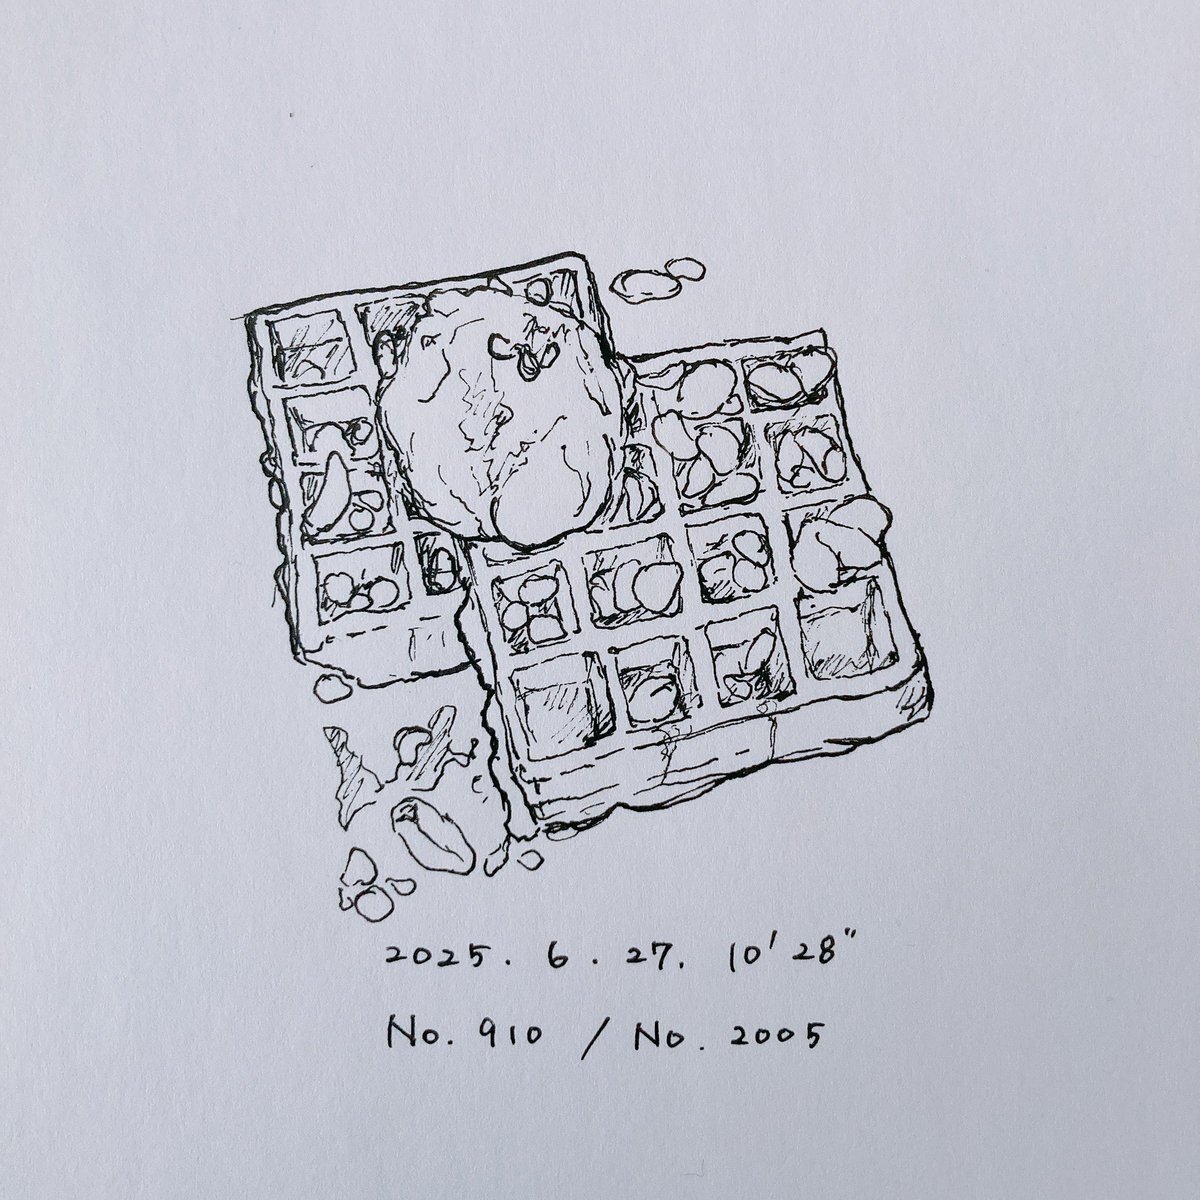 2025. 6. 27. 10'28"
No. 910 / No. 2005